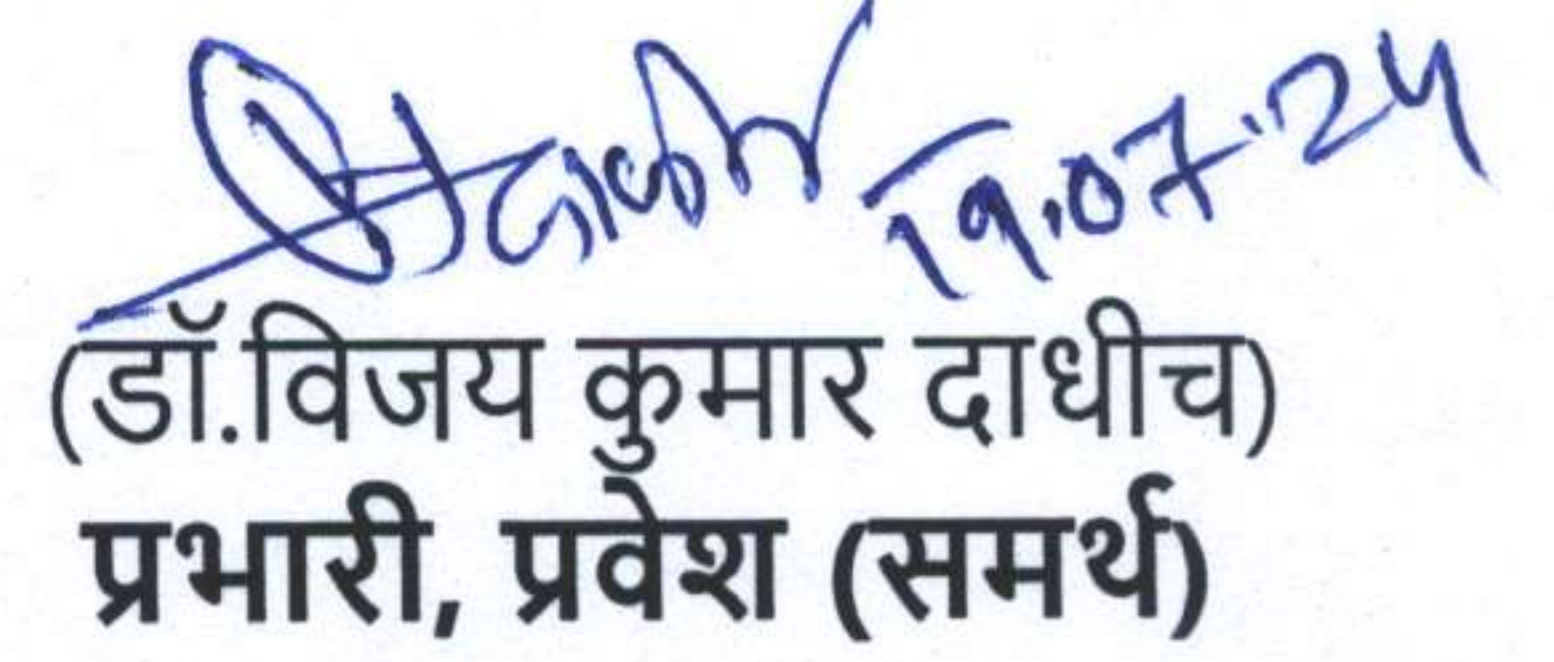 19.07.24
(डॉ.विजय कुमार दाधीच)
प्रभारी, प्रवेश (समर्थ)